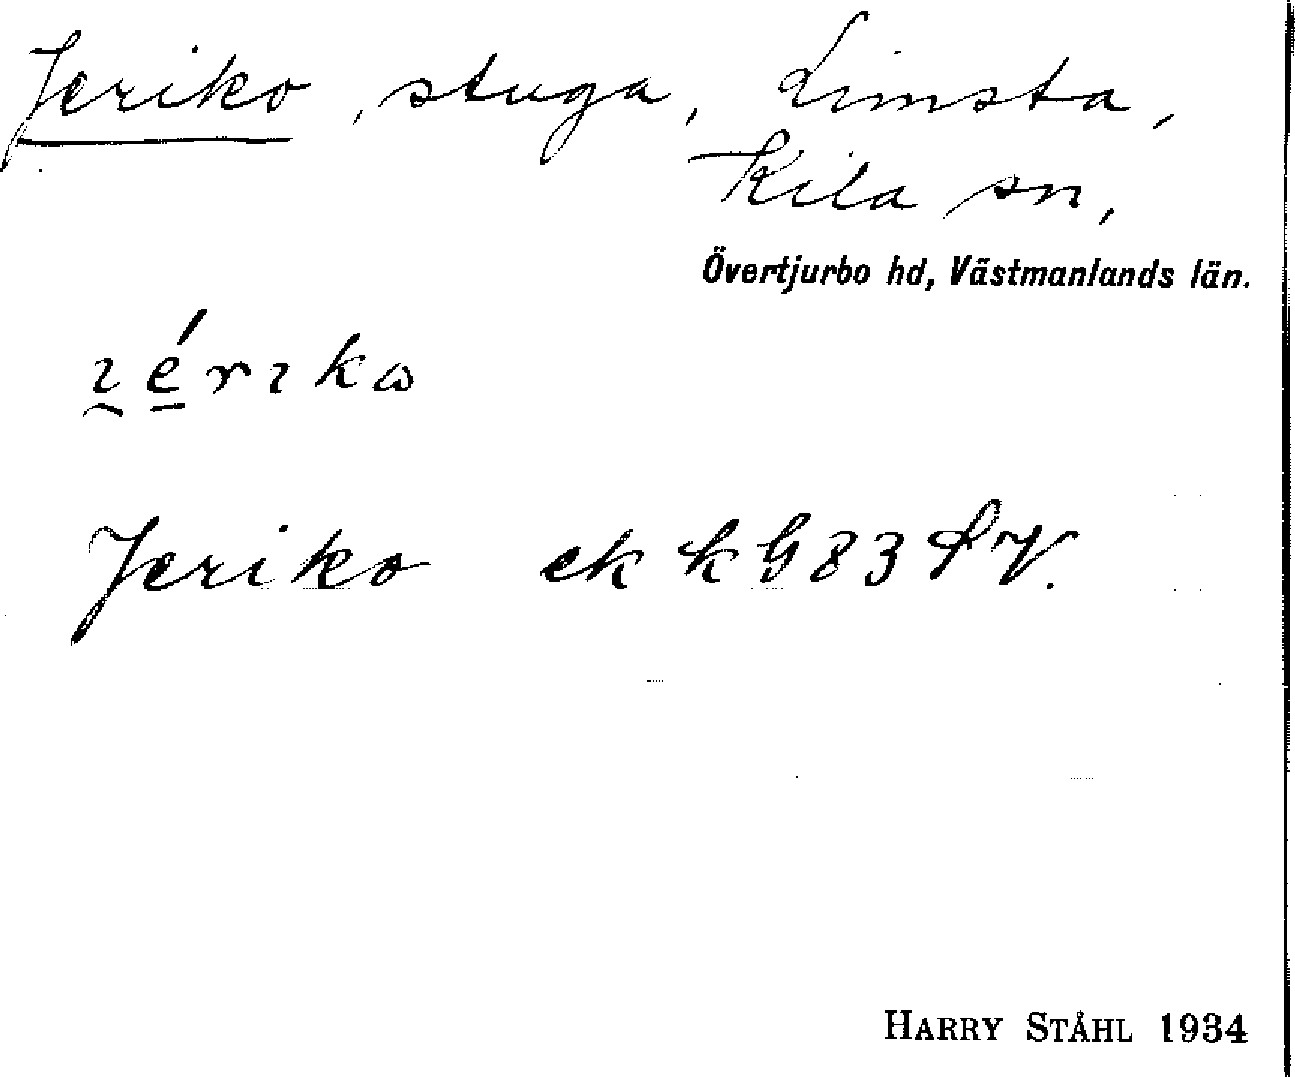 Jeriko, stuga, Limsta,
Kila sn,
Övertjurbo hd, Västmanlands län.
ɩ̯é̱rɩkω
Jeriko ek k G 83 SV.
HARRY STÅHL 1934